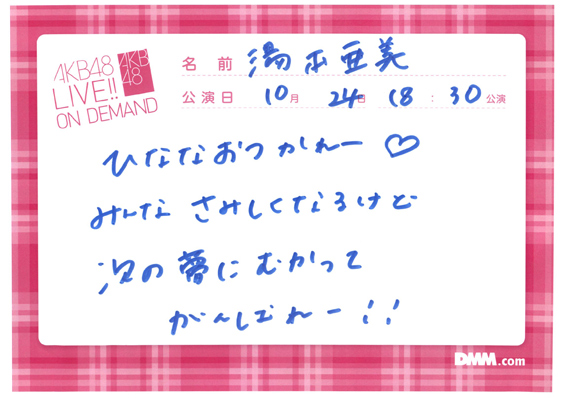 AKB48
LIVE!!
ON DEMAND
AKB
48
名前 湯本亜美
公演日 10月 24日 18:30公演
ひななおつかれー♡
みんなさみしくなるけど
次の夢にむかって
がんばれー!!
DMM.com